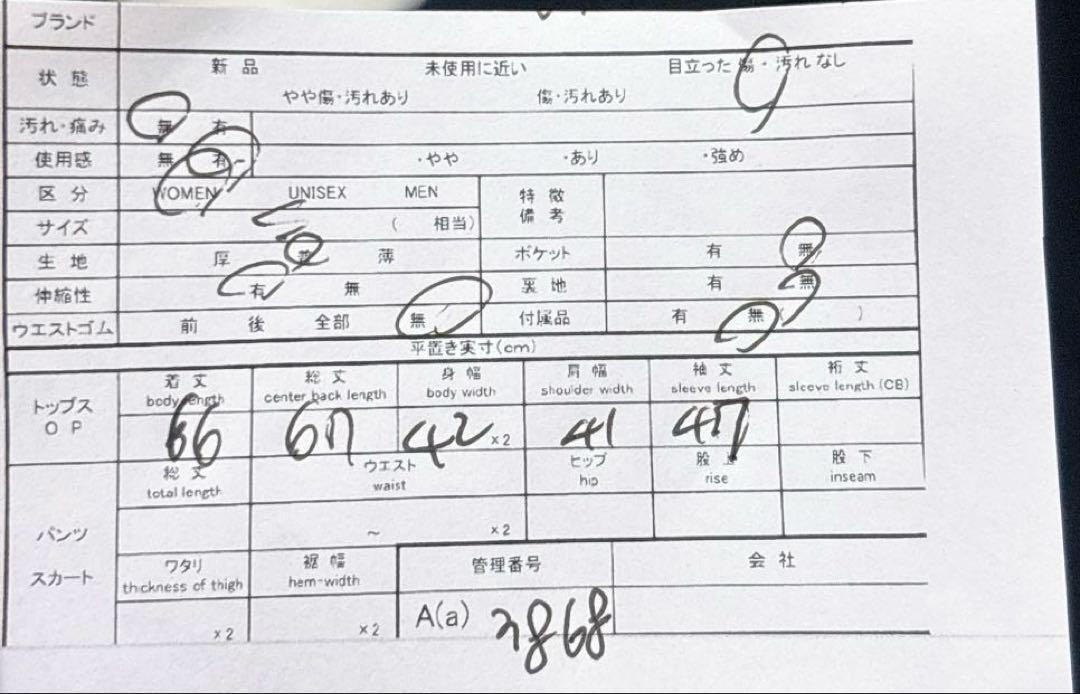 ブランド
状態 新品 未使用に近い 目立った傷・汚れなし
やや傷・汚れあり 傷・汚れあり
汚れ・痛み 無 有
使用感 無 有 ・やや ・あり ・強め
区分 WOMEN UNISEX MEN 特徴
備考
サイズ ( 相当)
生地 厚 並 薄 ポケット 有 無
伸縮性 有 無 裏地 有 無
ウエストゴム 前 後 全部 無 付属品 有 無 ( )
平置き実寸(cm)
着丈 総丈 身幅 肩幅 袖丈 裄丈
body length center back length body width shoulder width sleeve length sleeve length (CB)
トップス
OP 66 67 42 ×2 41 47
総丈 ウエスト ヒップ 股上 股下
total length waist hip rise inseam
パンツ ~ ×2
スカート ワタリ 裾幅 管理番号 会社
thickness of thigh hem-width
×2 ×2 A(a) 3868